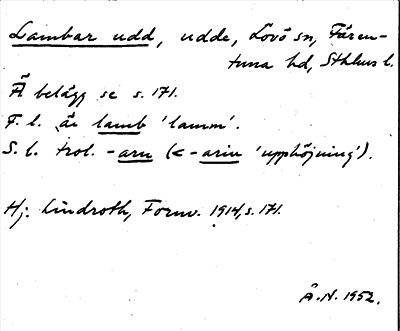 Lambar udd, udde, Lovö sn, Fären-
tuna hd, Sthlms l.
Ä belägg se s. 171.
F. l. är lamb 'lamm'.
S. l. trol. -arn (< -arin 'upphöjning').
Hj. Lindroth, Fornv. 1914, s. 171.
Å.N. 1952.